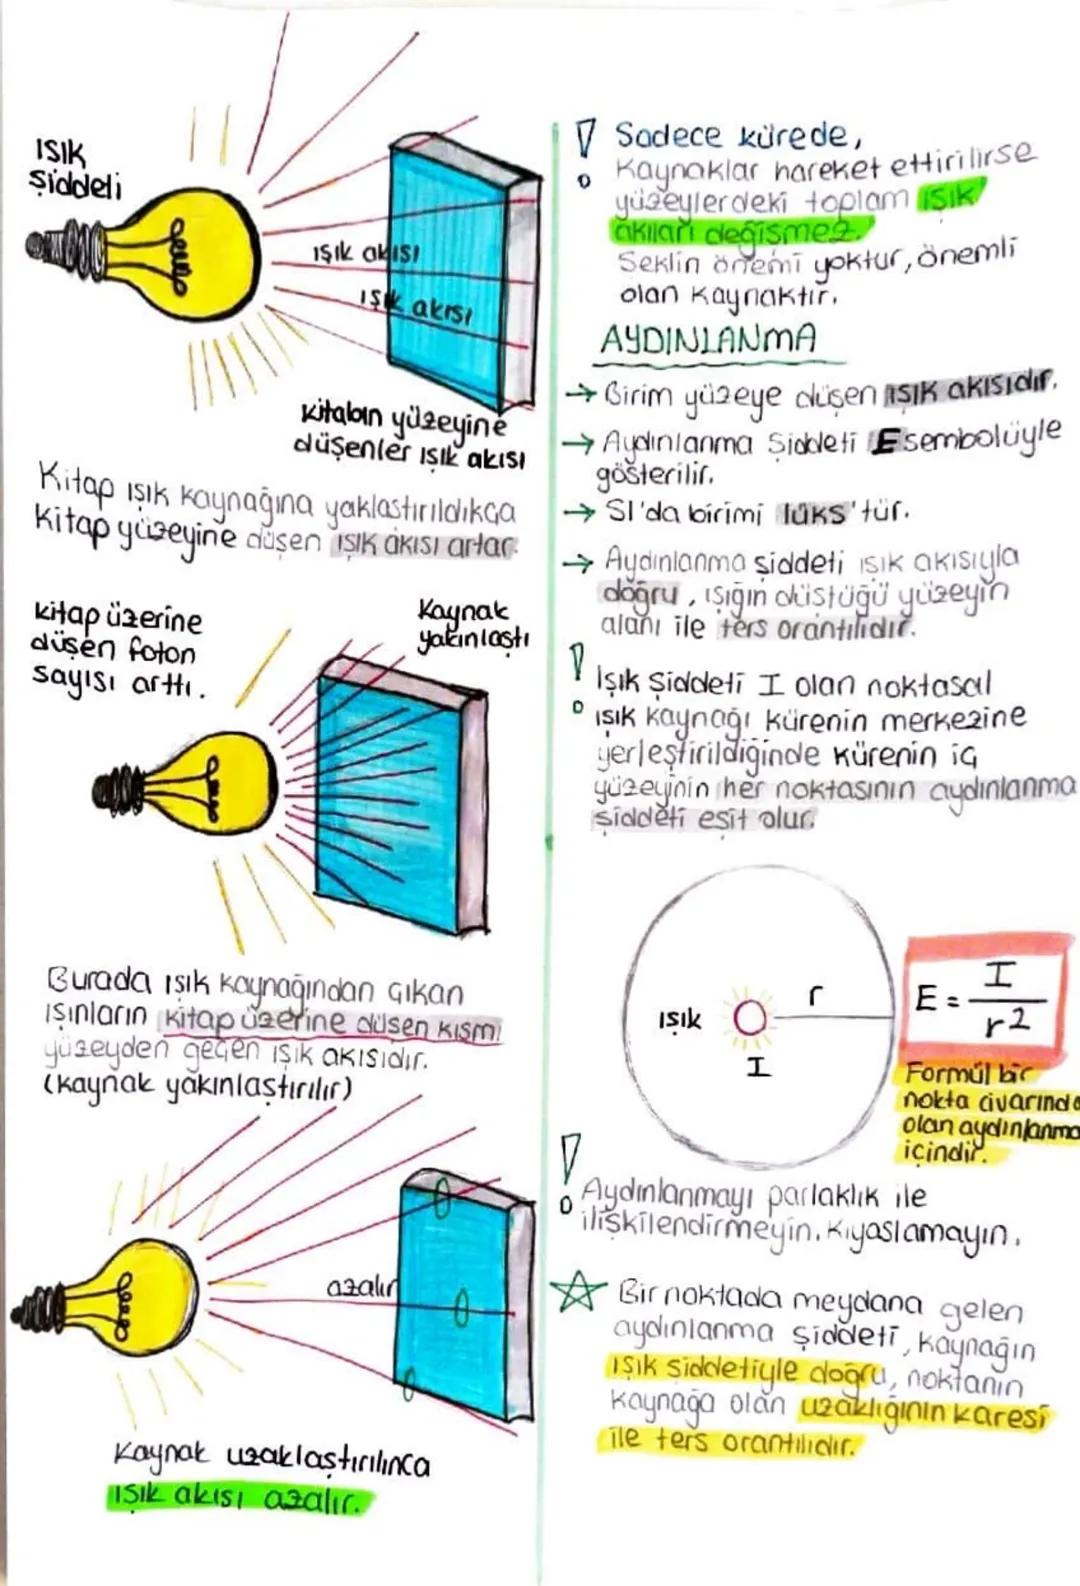 IŞIK
Şiddeti
ışık akısı
ışık akısı
kitabın yüzeyine
düşenler ışık akısı
Kitap ışık kaynağına yaklaştırıldıkça
Kitap yüzeyine düşen ışık akısı artar.
kitap üzerine
düşen foton
sayısı arttı.
Kaynak
yakınlaştı
Burada ışık kaynağından çıkan
ışınların kitap üzerine düşen kısmı
yüzeyden geçen ışık akısıdır.
(kaynak yakınlaştırılır)
azalır
Kaynak uzaklaştırılınca
ışık akısı azalır.
! Sadece kürede,
Kaynaklar hareket ettirilirse
yüzeylerdeki toplam ışık
akıları değişmez.
Şeklin önemi yoktur, önemli
olan kaynaktır.
AYDINLANMA
→ Birim yüzeye düşen ışık akısıdır.
→ Aydınlanma Şiddeti E sembolüyle
gösterilir.
→ SI'da birimi lüks'tür.
→ Aydınlanma şiddeti ışık akısıyla
doğru, ışığın düştüğü yüzeyin
alanı ile ters orantılıdır.
! Işık Şiddeti I olan noktasal
ışık kaynağı kürenin merkezine
yerleştirildiğinde kürenin iç
yüzeyinin her noktasının aydınlanma
şiddeti eşit olur.
ışık
r
I
E = I / r²
Formül bir
nokta civarında
olan aydınlanma
içindir.
! Aydınlanmayı parlaklık ile
ilişkilendirmeyin. Kıyaslamayın.
☆ Bir noktada meydana gelen
aydınlanma şiddeti, kaynağın
ışık şiddetiyle doğru, noktanın
kaynağa olan uzaklığının karesi
ile ters orantılıdır.